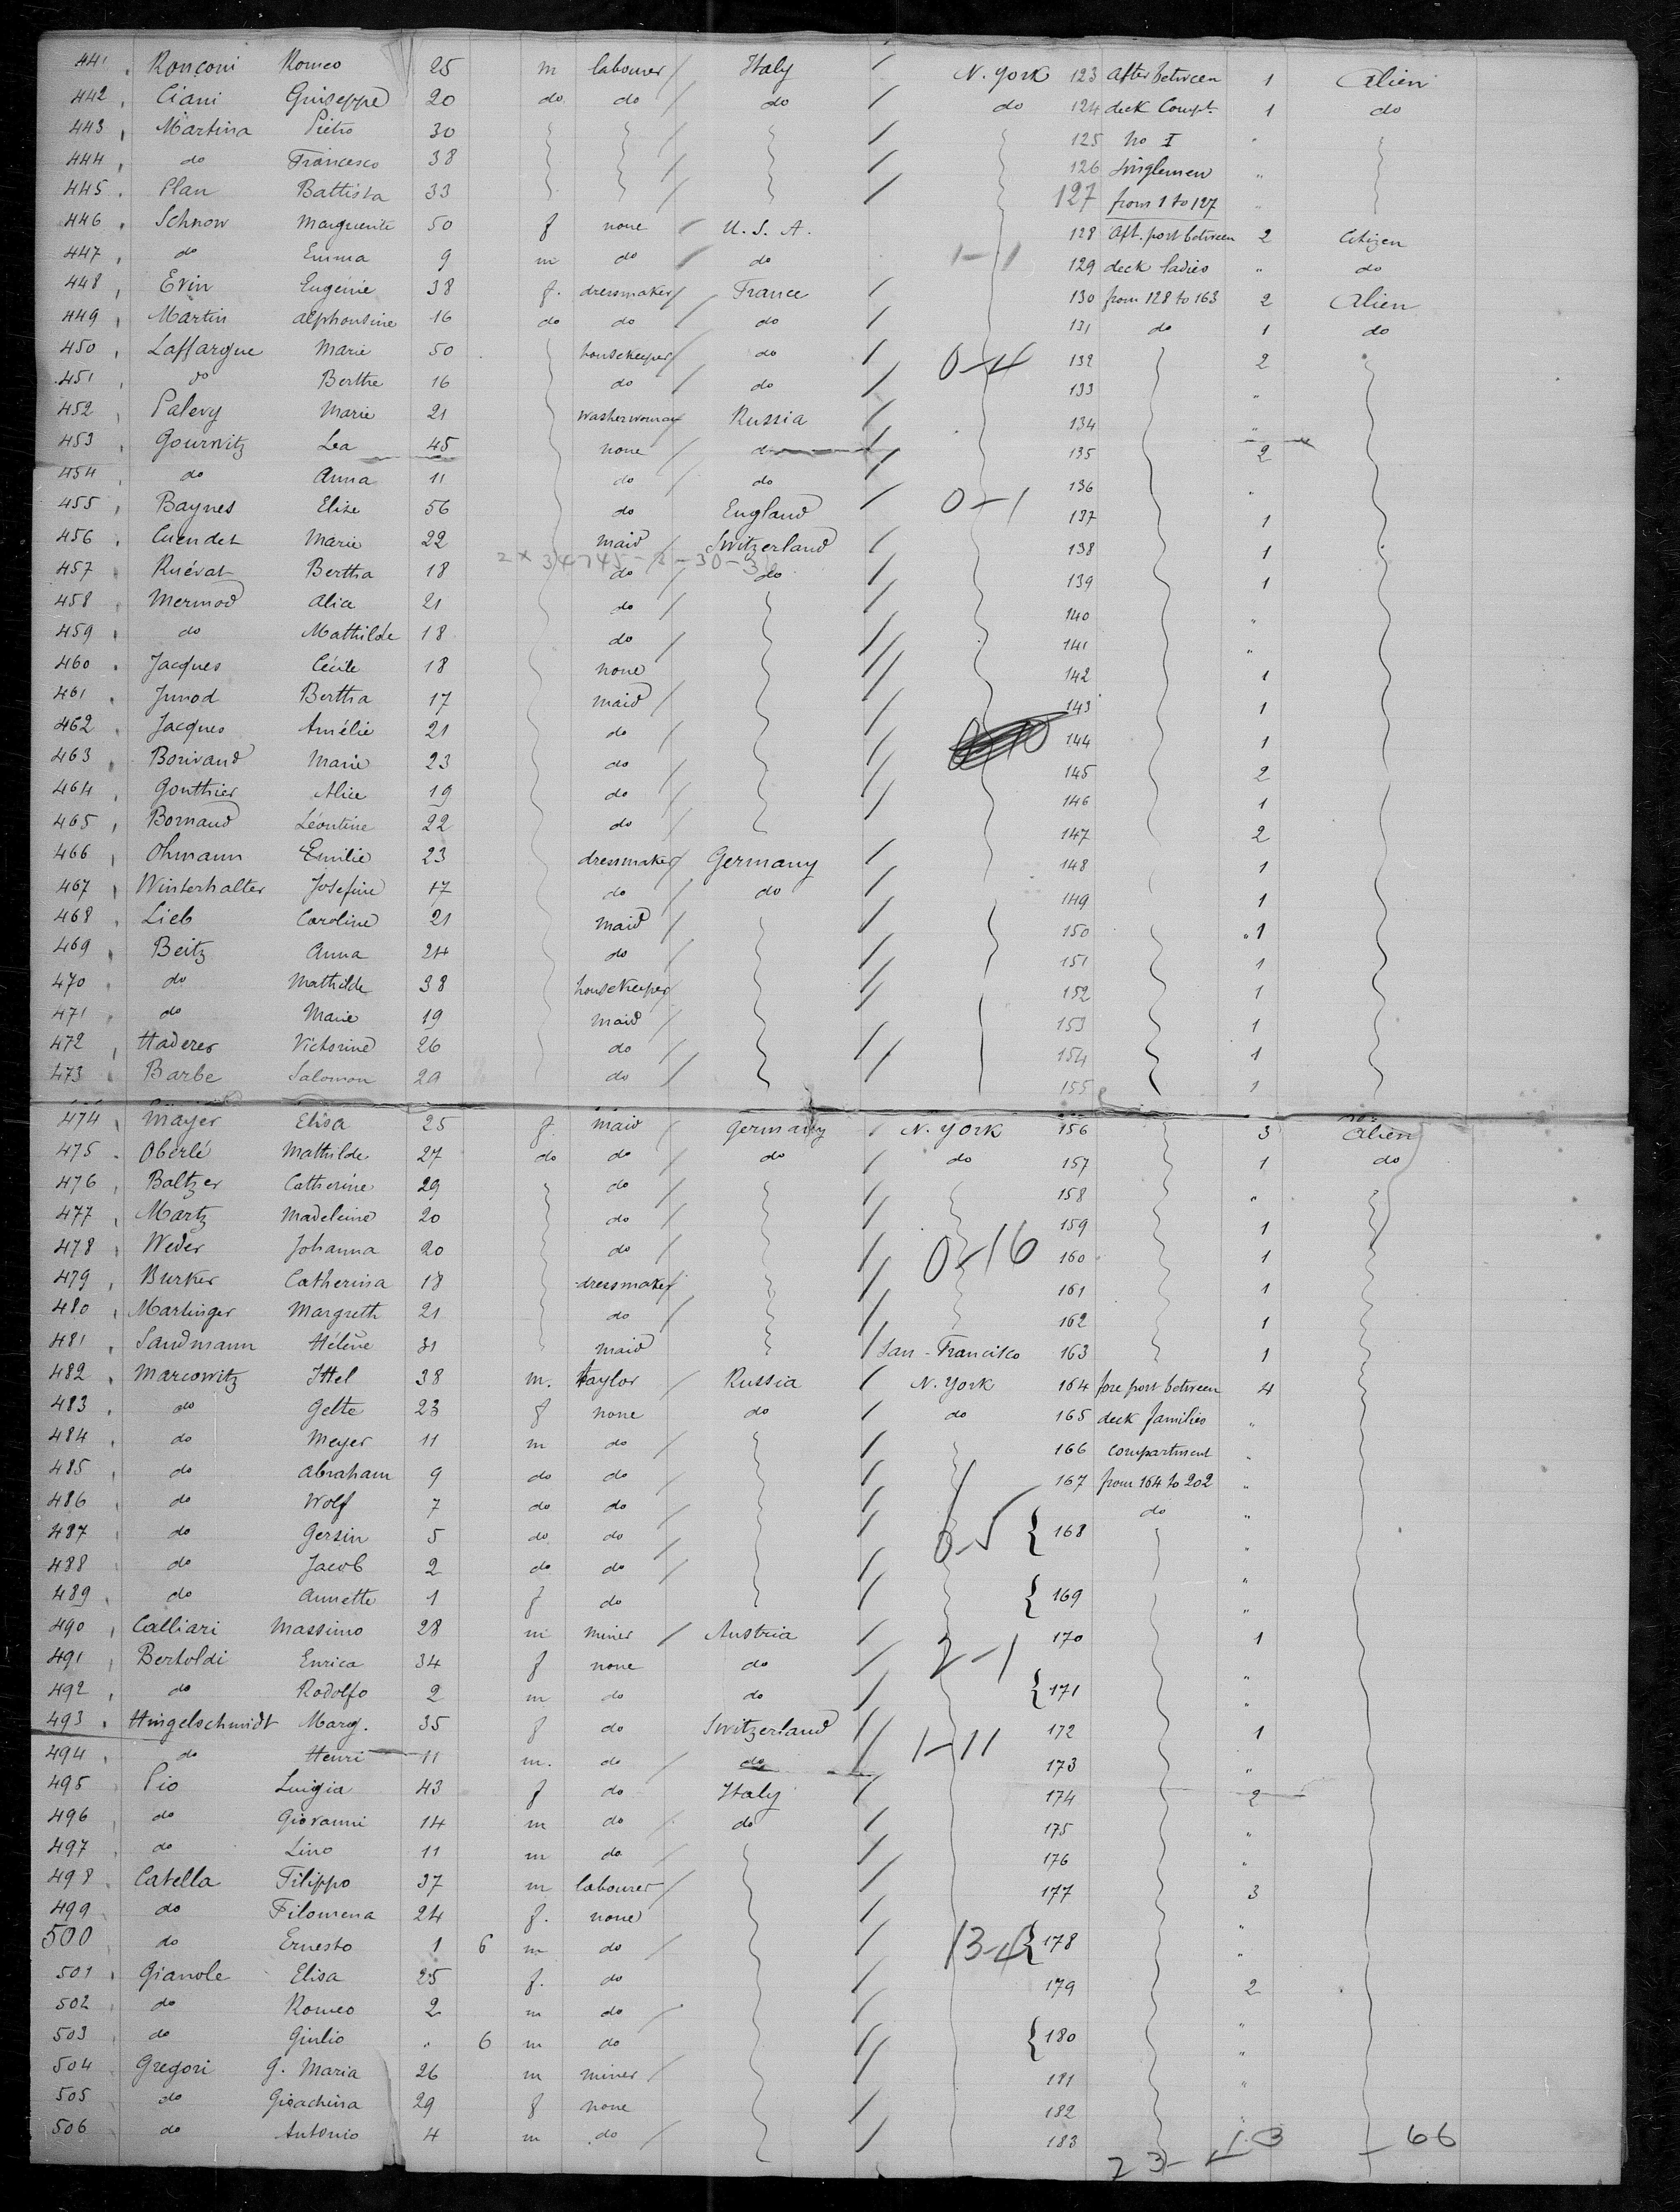 441 Ronconi Romeo 25 m labourer Italy N. York 123 After between 1 Alien
442 Ciani Guiseppe 20 do do do do 124 deck Compt. 1 do
443 Martina Pietro 30 125 No I "
444 do Francesco 38 126 singlemen "
445 Plan Battista 33 127 from 1 to 127 "
446 Schnow Marguerite 50 f none U. S. A. 128 Aft. port between 2 Citizen
447 do Emma 9 m do do 1-1 129 deck ladies " do
448 Evin Eugénie 38 f. dressmaker France 130 from 128 to 163 2 Alien
449 Martin Alphonsine 16 do do do 131 do 1 do
450 Laffargue Marie 50 housekeeper do 0-4 132 2
451 do Berthe 16 do do 133 "
452 Palevy Marie 21 washerwoman Russia 134 "
453 Gourwitz Lea 45 none do 135 2
454 do Anna 11 do do 136 "
455 Baynes Elise 56 do England 0-1 137 1
456 Cuendet Marie 22 maid Switzerland 138 1
457 Ruévat Bertha 18 do do 139 1
458 Mermod Alice 21 do 140 "
459 do Mathilde 18 do 141 "
460 Jacques Cécile 18 none 142 1
461 Junod Bertha 17 maid 143 1
462 Jacques Amélie 21 do 144 1
463 Borivand Marie 23 do 145 2
464 Gonthier Alice 19 do 146 1
465 Bornand Léontine 22 do 147 2
466 Ohmann Emilie 23 dressmaker Germany 148 1
467 Winterhalter Josefine 17 do do 149 1
468 Lieb Caroline 21 maid 150 " 1
469 Beitz Anna 24 do 151 1
470 do Mathilde 38 housekeeper 152 1
471 do Marie 19 maid 153 1
472 Haderer Victorine 26 do 154 1
473 Barbe Salomon 29 do 155 1
474 Mayer Elisa 25 f. maid Germany N. York 156 3 Alien
475 Oberlé Mathilde 27 do do do do 157 1 do
476 Baltzer Catherine 29 do 158 "
477 Martz Madeleine 20 do 159 1
478 Weder Johanna 20 do 0-16 160 1
479 Burker Catherina 18 dressmaker 161 1
480 Martinger Margreth 21 do 162 1
481 Sandmann Hélène 31 maid San-Francisco 163 1
482 Marcowitz Ittel 38 m. taylor Russia N. York 164 fore port between 4
483 do Gelte 23 f none do do 165 deck families "
484 do Meyer 11 m do 166 compartment "
485 do Abraham 9 do do 167 from 164 to 202 "
486 do Wolf 7 do do do "
487 do Gersin 5 do do 0-5 { 168 "
488 do Jacob 2 do do "
489 do Annette 1 f do { 169 "
490 Calliari Massimo 28 m miner Austria 170 1
491 Bertoldi Enrica 34 f none do 2-1 "
492 do Rodolfo 2 m do do { 171 "
493 Hingelschmidt Marg. 35 f do Switzerland 172 1
494 do Henri 11 m. do do 1-11 173 "
495 Pio Luigia 43 f do Italy 174 2
496 do Giovanni 14 m do do 175 "
497 do Lino 11 m do 176 "
498 Catella Filippo 37 m labourer 177 3
499 do Filomena 24 f. none "
500 do Ernesto 1 6 m do 13-4 { 178 "
501 Gianole Elisa 25 f. do 179 2
502 do Romeo 2 m do "
503 do Giulio " 6 m do { 180 "
504 Gregori G. Maria 26 m miner 181 "
505 do Gioachina 29 f none 182 "
506 do Antonio 4 m do 183
66